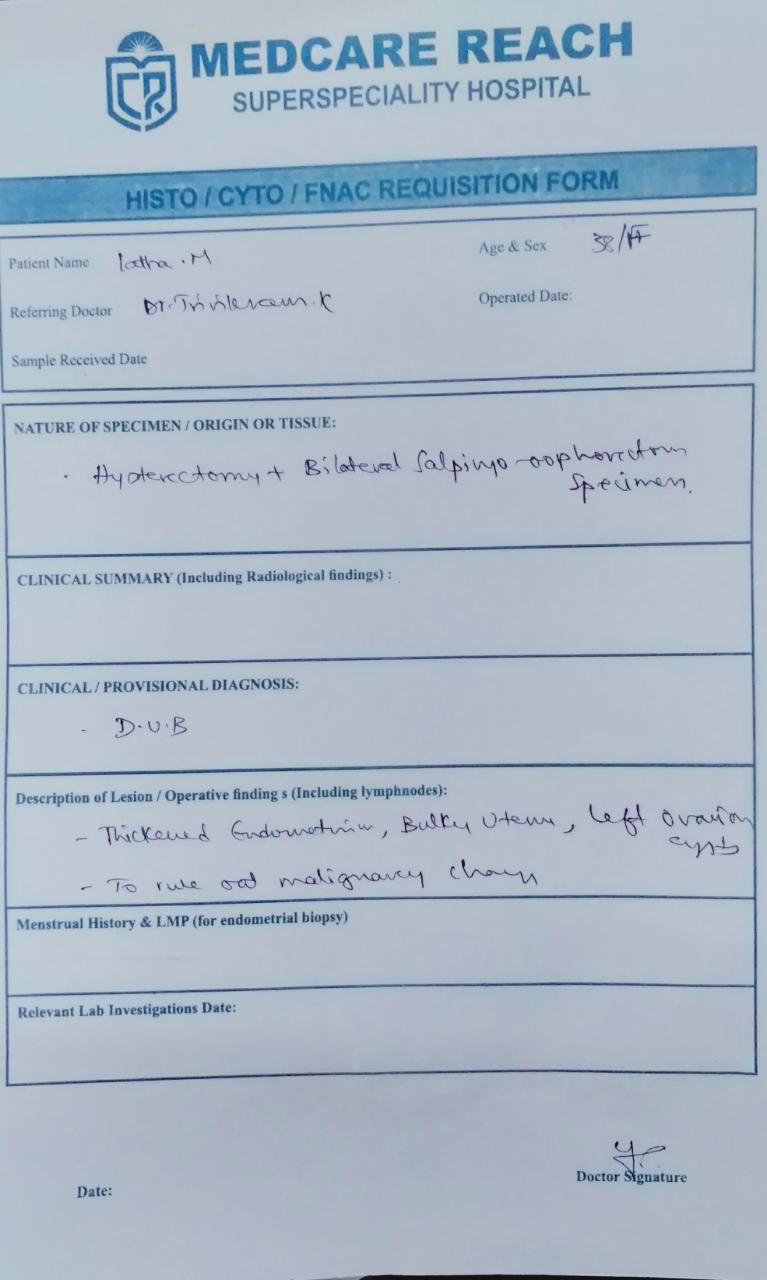 MEDCARE REACH
SUPERSPECIALITY HOSPITAL
HISTO / CYTO / FNAC REQUISITION FORM
Patient Name Latha . M
Age & Sex 38/F
Referring Doctor Dr.
Operated Date:
Sample Received Date
NATURE OF SPECIMEN / ORIGIN OR TISSUE:
. Hysterectomy + Bilateral Salpingo-oophorectomy
Specimen.
CLINICAL SUMMARY (Including Radiological findings) :
CLINICAL / PROVISIONAL DIAGNOSIS:
- D.U.B
Description of Lesion / Operative finding s (Including lymphnodes):
- Thickened Endometrium, Bulky Uterus, left ovarian
cyst
- To rule out malignancy
Menstrual History & LMP (for endometrial biopsy)
Relevant Lab Investigations Date:
Doctor Signature
Date: